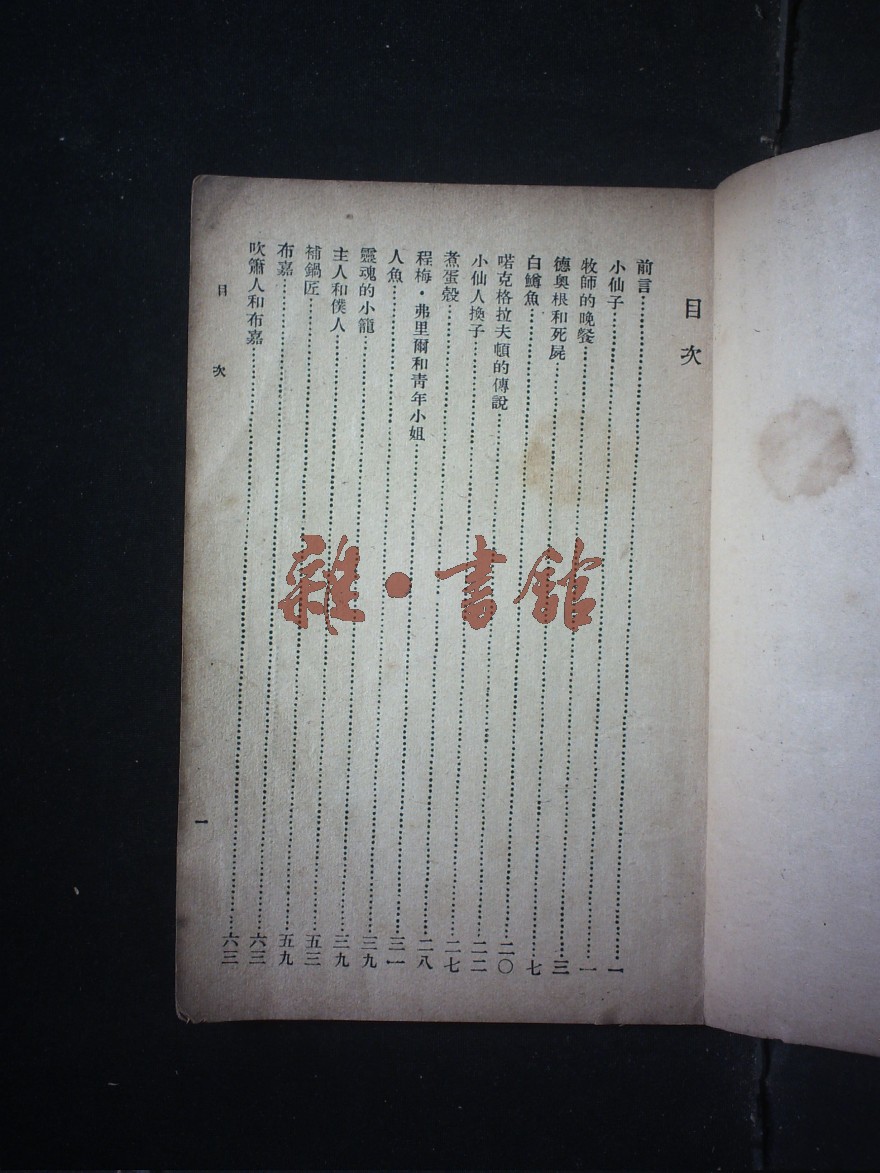 目次
前言……一
小仙子……一
牧師的晚餐……三
德奧根和死屍……七
白鱒魚……二〇
喏克格拉夫頓的傳說……二二
小仙人換子……二七
煮蛋殼……二八
程梅・弗里爾和青年小姐……三一
人魚……三九
靈魂的小籠……三九
主人和僕人……五三
補鍋匠……五九
布嘉……六三
吹簫人和布嘉……六三
目次
一
雜・書館